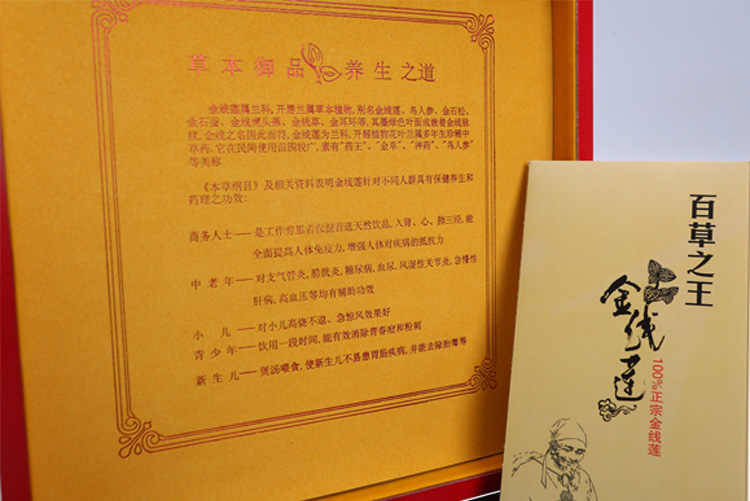 草本御品 养生之道
金线莲属兰科,开唇兰属草本植物,别名金线莲、鸟人参、金石松、
金石蚕、金线虎头蕉、金钱草、金耳环等,其墨绿色叶面或嵌着金线脉
纹,金线之名因此而得,金线莲为兰科,开唇植物花叶兰属多年生珍稀中
草药.它在民间使用范围较广,素有"药王"、"金草"、"神药"、"鸟人参"
等美称
《本草纲目》及相关资料表明金线莲针对不同人群具有保健养生和
药理之功效:
商务人士——是工作劳累者保健首选天然饮品,入肾、心、肺三经,能
全面提高人体免疫力,增强人体对疾病的抵抗力
中老年——对支气管炎,膀胱炎,糖尿病,血尿,风湿性关节炎,急慢性
肝病,高血压等均有辅助功效
小儿——对小儿高烧不退、急惊风效果好
青少年——饮用一段时间,能有效消除青春痘和粉刺
新生儿——煲汤喂食,使新生儿不易患胃肠疾病,并能去除胎毒等
百草之王
金线莲
100%正宗金线莲